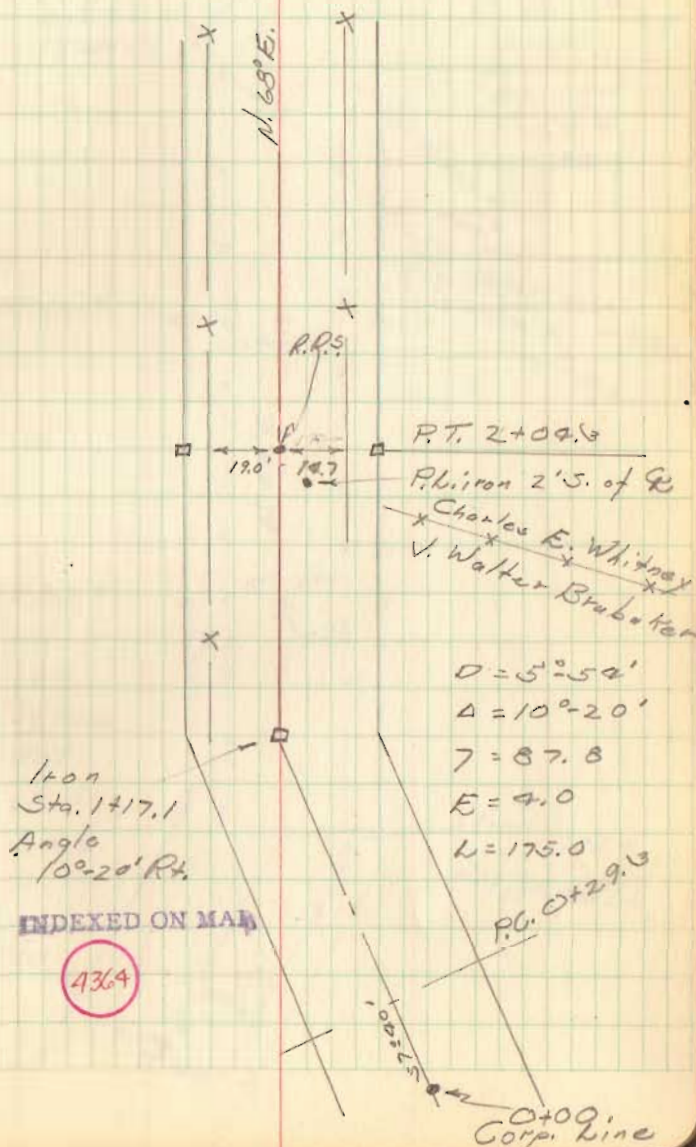 N. 68° E.
R.R.S
P.T. 2+04.3
19.0' 14.7
P.L. iron 2' S. of ℄
Charles E. Whitney
V. Walter Brubaker
D = 5°-54'
Δ = 10°-20'
T = 87.8
E = 4.0
L = 175.0
Iron
Sta. 1+17.1
Angle
10°-20' Rt.
P.C. 0+29.3
INDEXED ON MAP
4364
57°40'
0+00.
Corp. Line